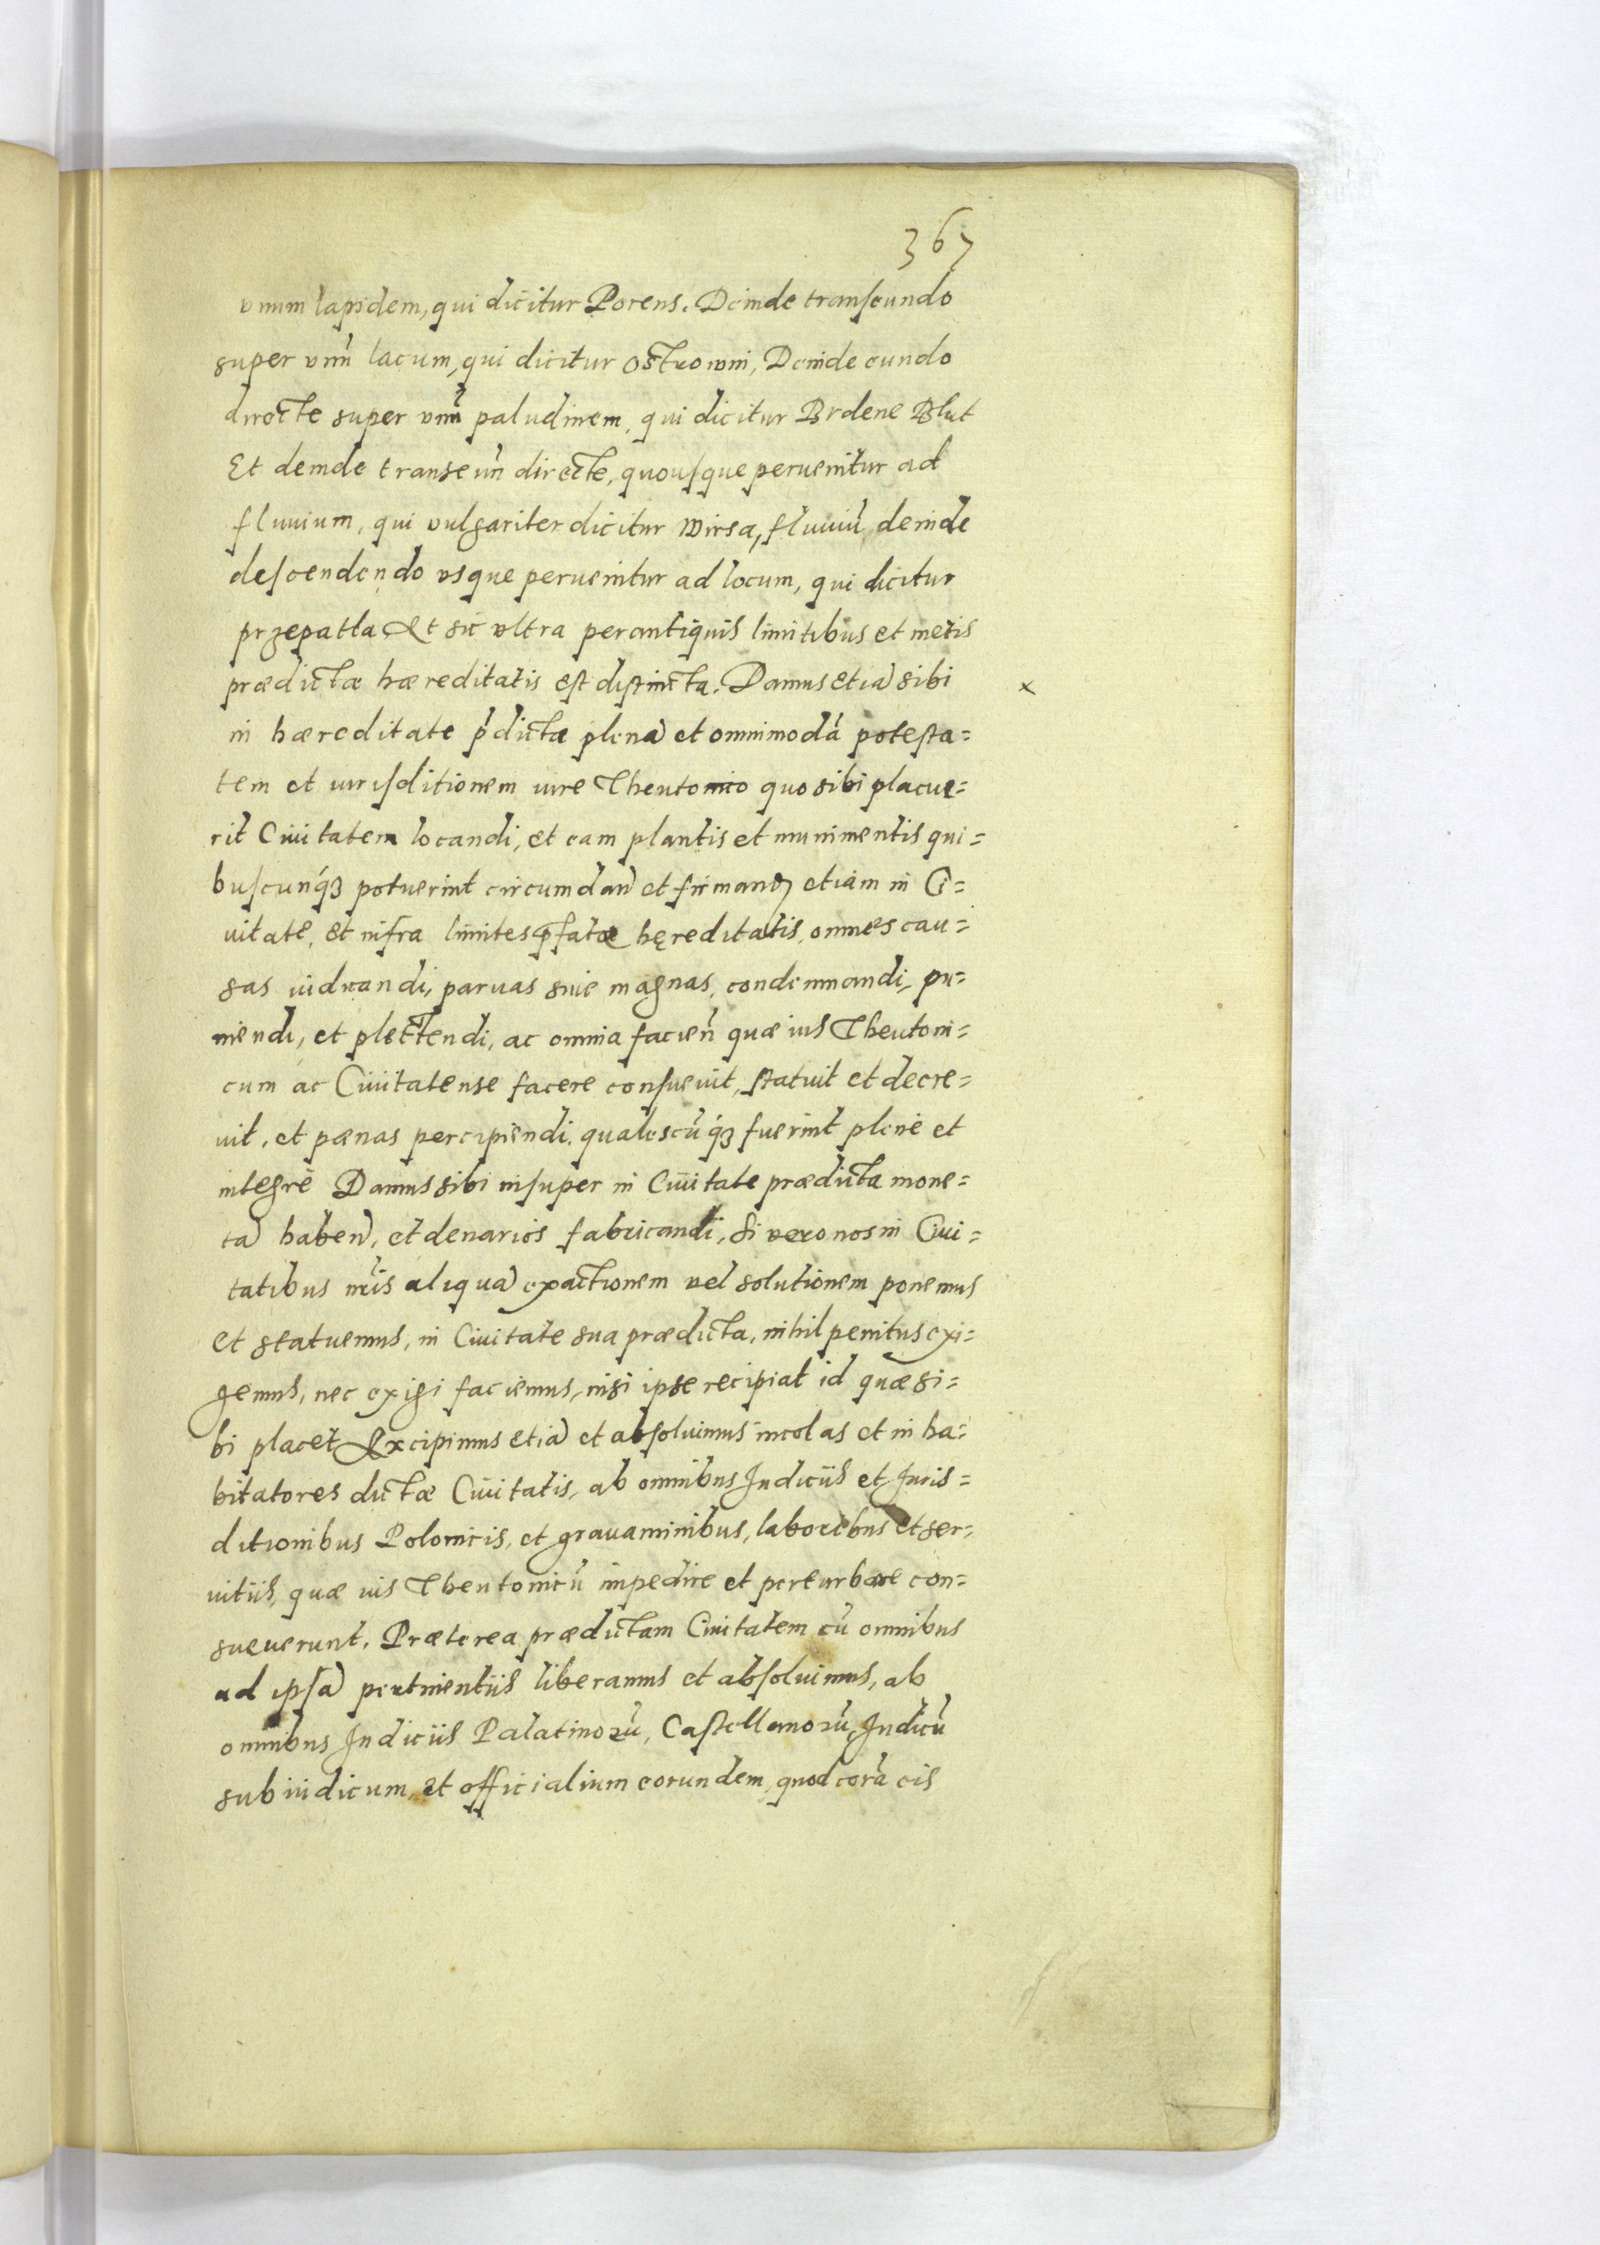 367
vnum lapidem, qui dicitur Porens. Deinde transeundo
super vnū lacum, qui dicitur Ostrowni, Deinde eundo
directe super vnū paludinem, qui dicitur Brdene Blut
Et deinde transeūn directe, quousque peruenitur ad
fluuium, qui vulgariter dicitur Wirsa, fluuiū deinde
descendendo vsque peruenitur ad locum, qui dicitur
przepatla Et sic vltra per antiquis limitibus et metis
prædictæ hæreditatis est distincta. Damus etiā sibi
x
in hæreditate p̄dictæ plenā et omnimodā potesta=
tem et iurisditionem iure Theutonico quo sibi placue=
rit Ciuitatem locandi, et eam plantis et munimentis qui=
buscunq3 potuerint circumdan̄ et firmand etiam in Ci=
uitate, et infra limites p̄fatæ hęreditatis, omnes cau=
sas iudicandi, paruas siue magnas, condemnandi, pu=
niendi, et plectendi, ac omnia facien̄ quæ ius Theutoni=
cum ac Ciuitatense facere consueuit, statuit et decre=
uit, et pœnas percipiendi, qualescūq3 fuerint plenè et
integrè Damus sibi insuper in Ciuitate prædicta mone=
tā haben̄, et denarios fabricandi, Si vero nos in Ciui=
tatibus nr̄is aliquā exactionem vel solutionem ponemus
et statuemus, in Ciuitate sua prædicta, nihil penitus exi=
gemus, nec exigi faciemus, nisi ipse recipiat id quæ si=
bi placet Excipimus etiā et absoluimus incolas et inha=
bitatores dictæ Ciuitatis, ab omnibus Iudiciis et Juris=
ditionibus Polonicis, et grauaminibus, laboribus et ser=
uitiis, quæ ius Theutonicū impedire et perturbare con=
sueuerunt. Præterea prædictam Ciuitatem cū omnibus
ad ipsā pertinentiis liberamus et absoluimus, ab
omnibus Iudiciis Palatinorū, Castellanorū, Iudicū
subiudicum, et officialium eorundem, quod corā eis